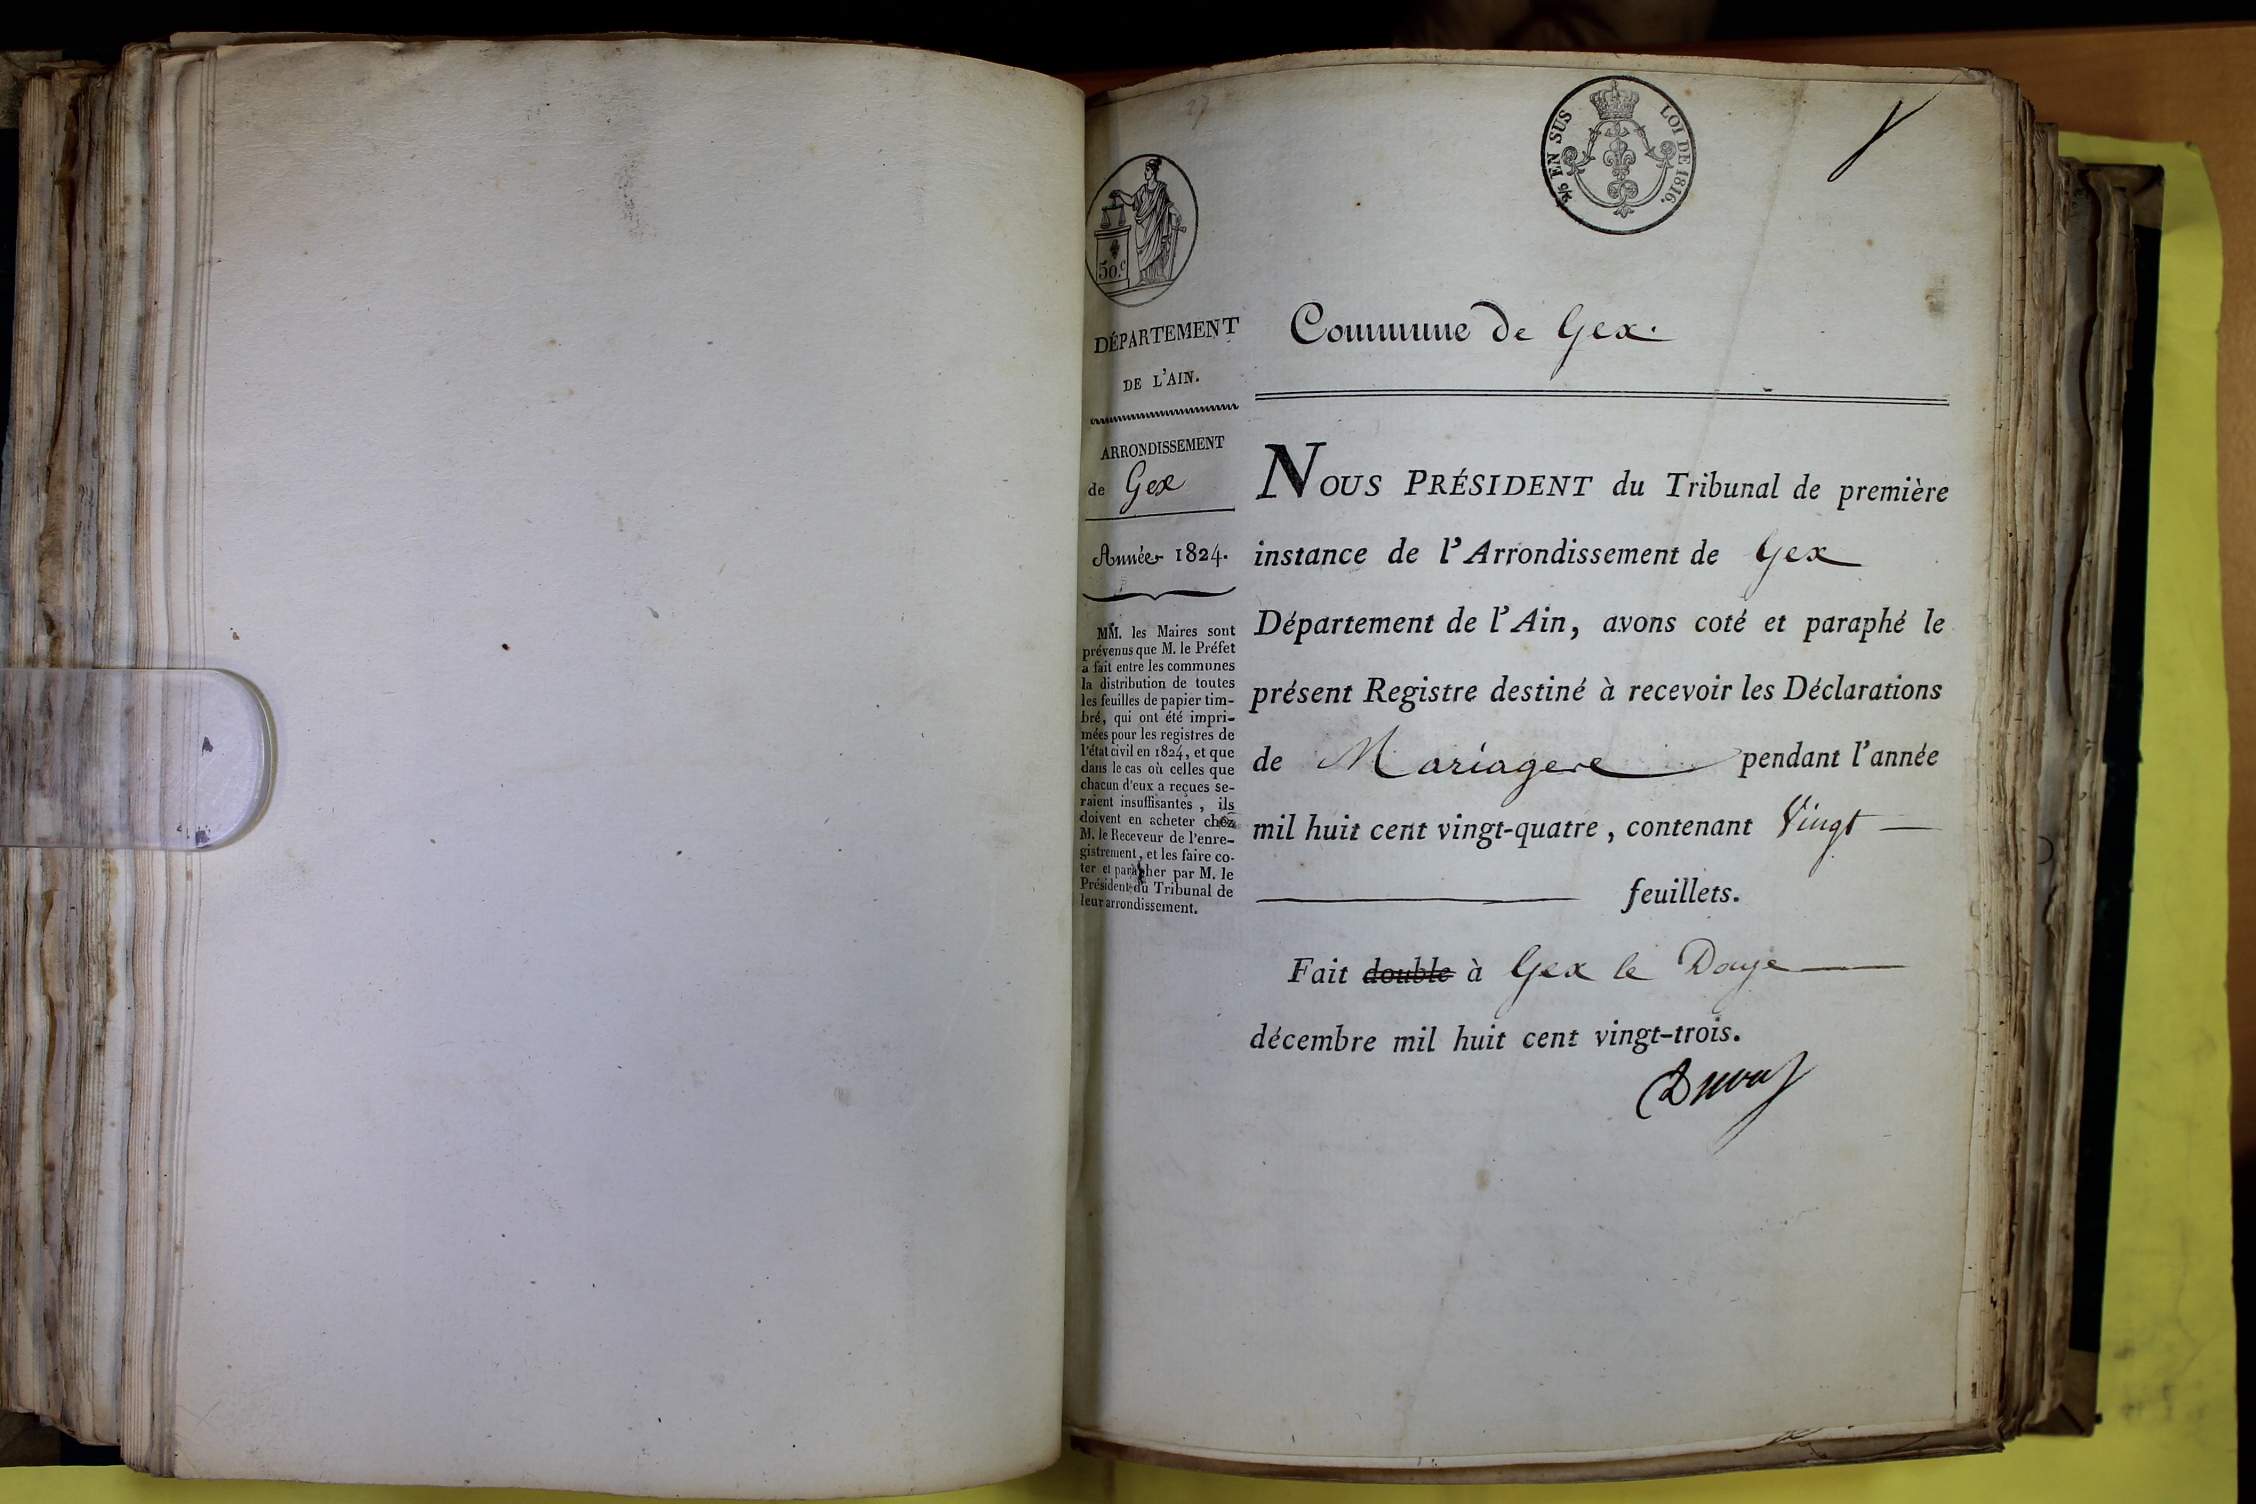 27
5/5 EN SUS LOI DE 1816.
50.c
DÉPARTEMENT
DE L'AIN.
ARRONDISSEMENT
de Gex
Année 1824.
MM. les Maires sont
prévenus que M. le Préfet
a fait entre les communes
la distribution de toutes
les feuilles de papier tim-
bré, qui ont été impri-
mées pour les registres de
l'état civil en 1824, et que
dans le cas où celles que
chacun d'eux a reçues se-
raient insuffisantes, ils
doivent en acheter chez
M. le Receveur de l'enre-
gistrement, et les faire co-
ter et parapher par M. le
Président du Tribunal de
leur arrondissement.
Commune de Gex.
NOUS PRÉSIDENT du Tribunal de première
instance de l'Arrondissement de Gex
Département de l'Ain, avons coté et paraphé le
présent Registre destiné à recevoir les Déclarations
de Mariages pendant l'année
mil huit cent vingt-quatre, contenant Vingt
feuillets.
Fait double à Gex le Douze
décembre mil huit cent vingt-trois.